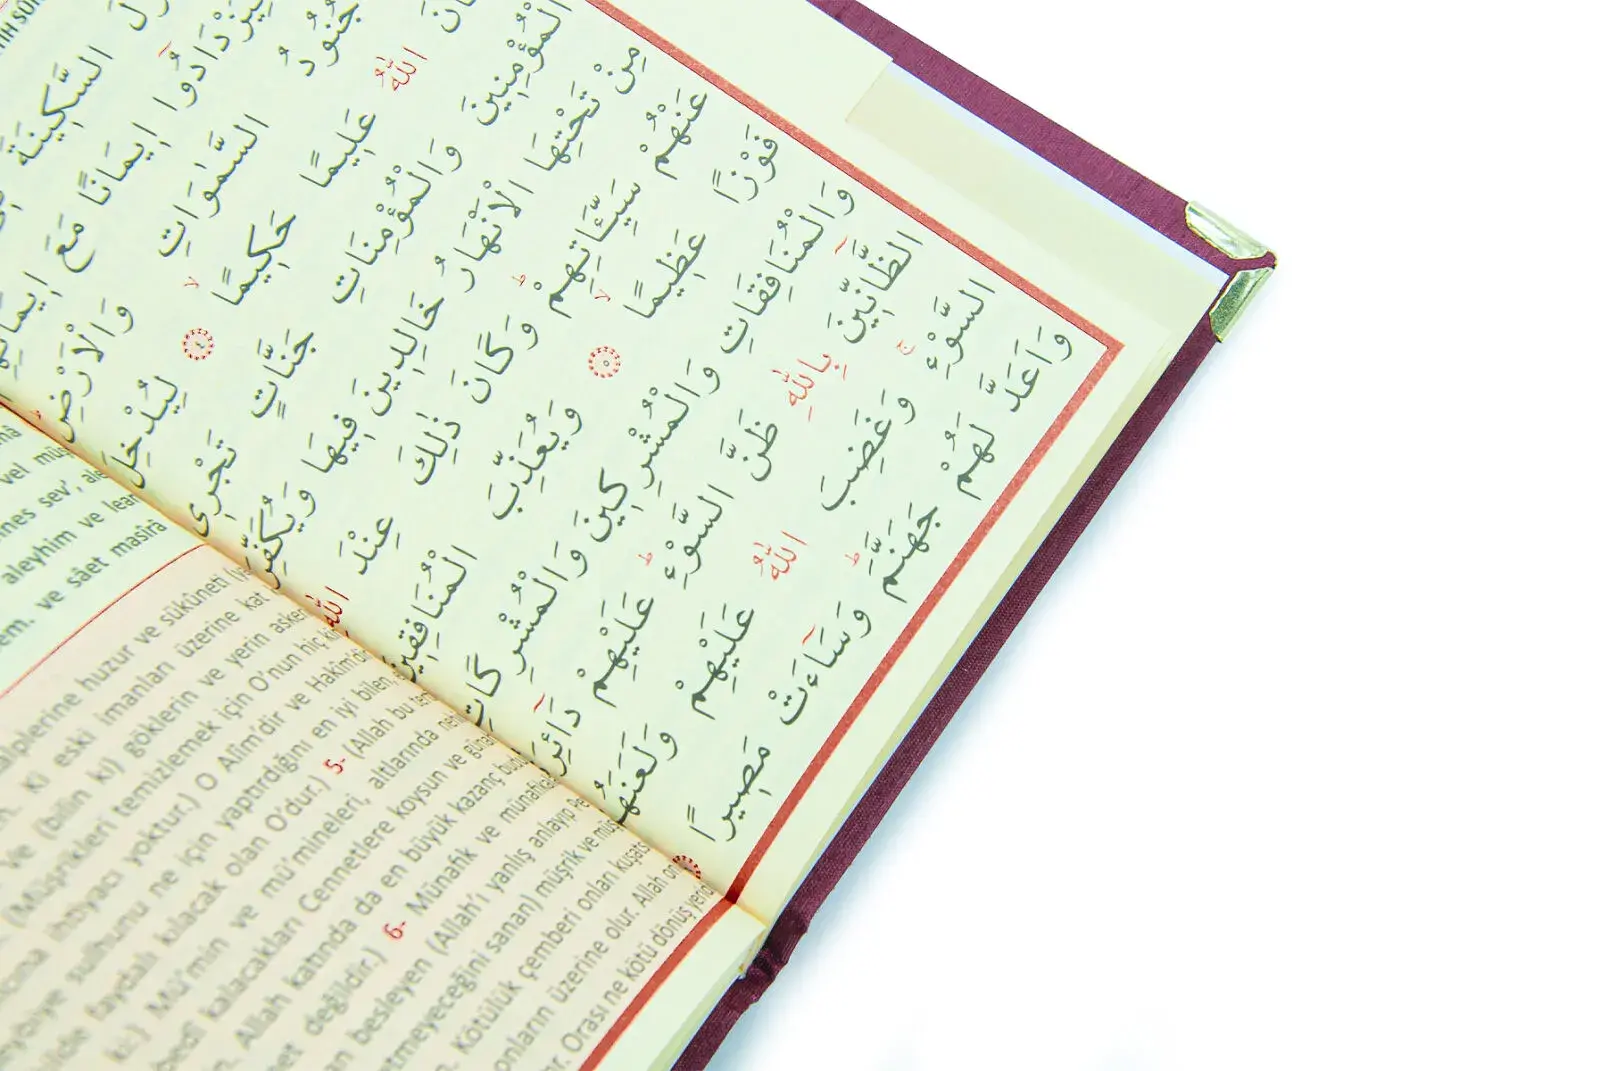 السَّكِينَةَ
دَادُوا اِيمَانًا مَعَ
جُنُودُ السَّمٰوَاتِ وَالْاَرْضِ
اللّٰهُ عَلِيمًا حَكِيمًا ۙ ٤ لِيُدْخِلَ
الْمُؤْمِنِينَ وَالْمُؤْمِنَاتِ جَنَّاتٍ تَجْرِى
مِنْ تَحْتِهَا الْاَنْهَارُ خَالِدِينَ فِيهَا وَيُكَفِّرَ
عَنْهُمْ سَيِّـَٔاتِهِمْ ۜ وَكَانَ ذٰلِكَ عِنْدَ اللّٰهِ
فَوْزًا عَظِيمًا ۙ ٥ وَيُعَذِّبَ الْمُنَافِقِينَ
وَالْمُنَافِقَاتِ وَالْمُشْرِكِينَ وَالْمُشْرِكَاتِ
الظَّٓانِّينَ بِاللّٰهِ ظَنَّ السَّوْءِ ۜ عَلَيْهِمْ دَٓائِرَ
السَّوْءِ ۚ وَغَضِبَ اللّٰهُ عَلَيْهِمْ وَلَعَنَهُ
وَاَعَدَّ لَهُمْ جَهَنَّمَ ۜ وَسَٓاءَتْ مَصِيرًا
vel müş
nnes sev', ale
aleyhim ve lean
em. ve sâet masîrâ
alplerine huzur ve sükûneti
Ki eski imanları üzerine kat
Ve (bilin ki) göklerin ve yerin asker
(Müşrikleri temizlemek için O'nun hiç ki
ihtiyacı yoktur.) O Alîm'dir ve Hakîm'di
sulhunu ne için yaptırdığını en iyi bilen,
faydalı kılacak olan O'dur.) 5- (Allah bu
ki:) Mü'min ve mü'mineleri, altlarında
bedî kalacakları Cennetlere koysun ve güna
Allah katında da en büyük kazanç budu
değildir.) 6- Münafık ve münafıka
besleyen (Allah'ı yanlış anlayıp Pe
etmeyeceğini sanan) müşrik ve müş
Kötülük çemberi onları kuşats
onların üzerine olur. Allah on
Orası ne kötü dönüş yerid